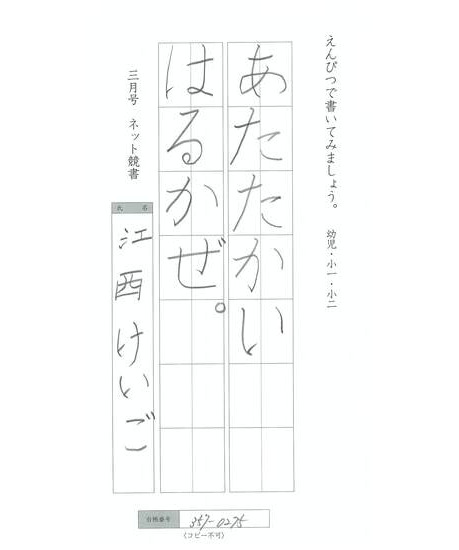 えんぴつで書いてみましょう。 幼児・小一・小二
あたたかい
はるかぜ。
三月号 ネット競書
氏名
江西けいご
合格番号 357-0275
(コピー不可)